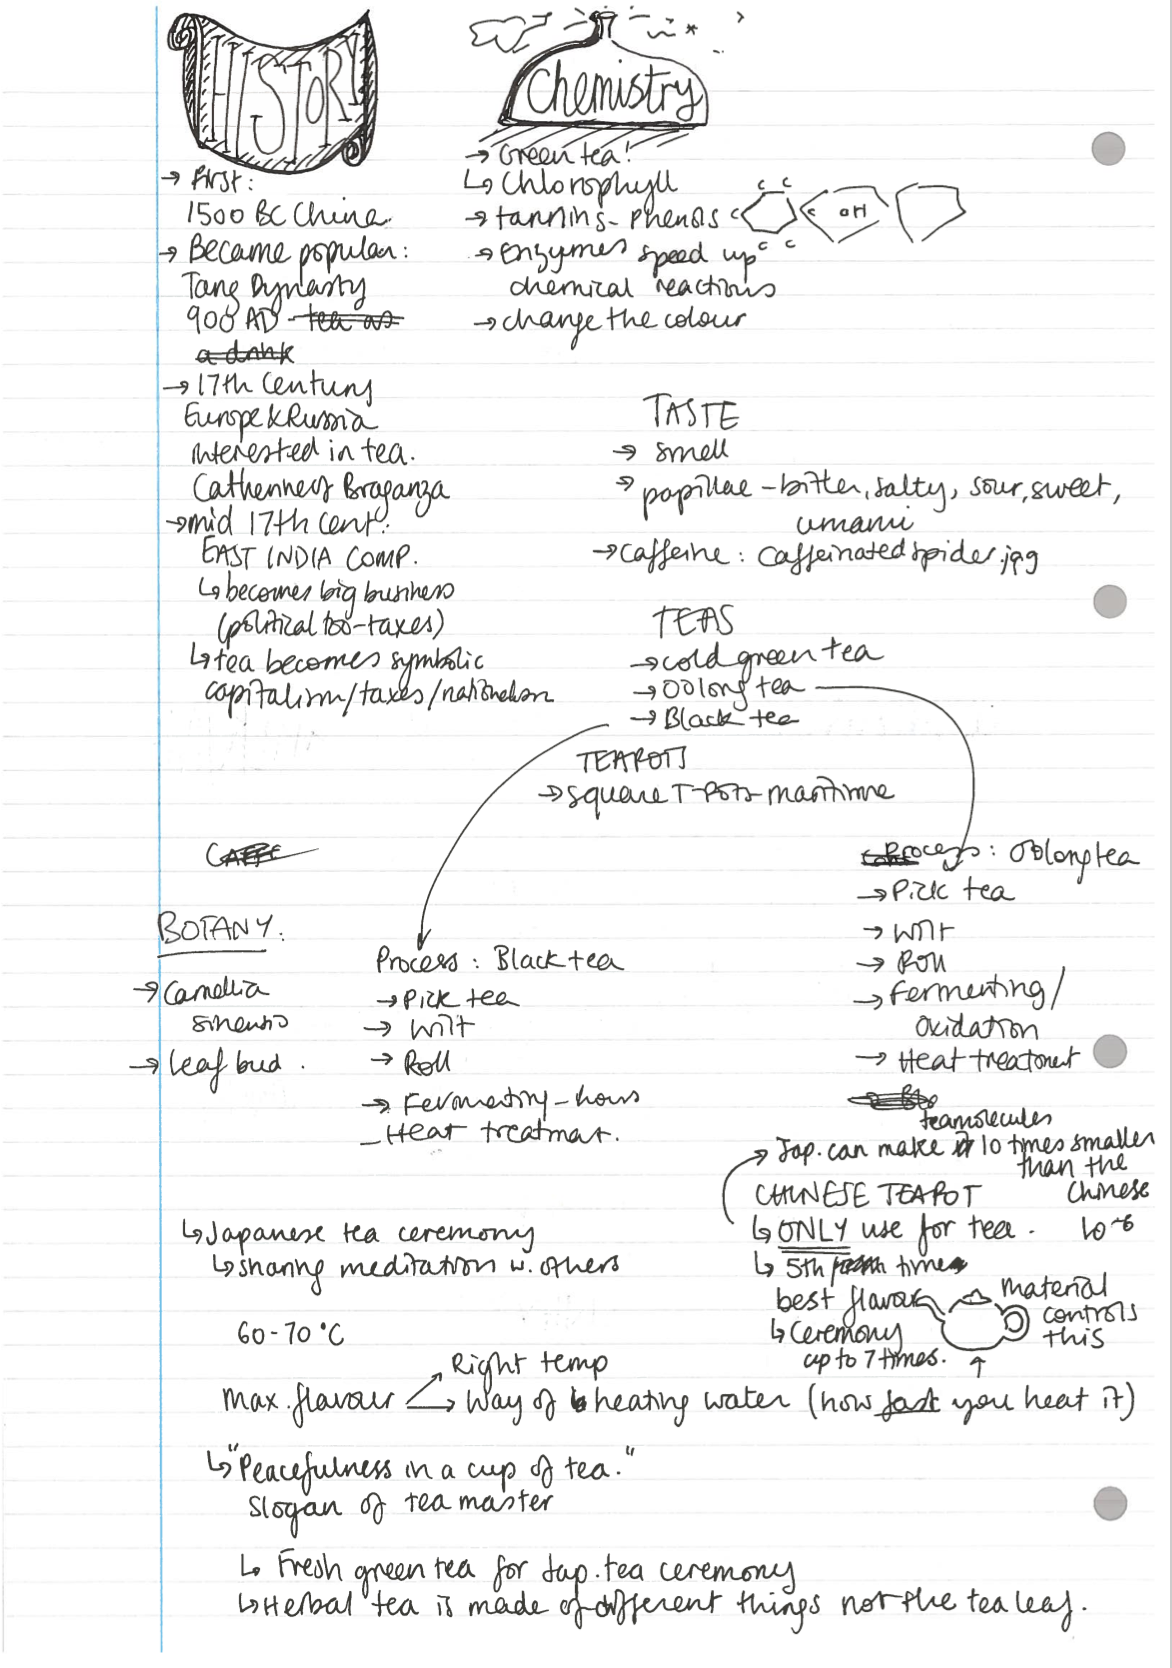 HISTORY
→ First:
1500 BC China.
→ Became popular:
Tang Dynasty
900 AD - tea as
a drink
→ 17th Century
Europe & Russia
interested in tea.
Catherine of Braganza
→ mid 17th cent.
EAST INDIA COMP.
↳ becomes big business
(political too - taxes)
↳ tea becomes symbolic
capitalism/taxes/nationalism
Chemistry
→ Green tea!
↳ Chlorophyll
→ tannins - phenols
c c
c c OH
c c
→ enzymes speed up
chemical reactions
→ change the colour
TASTE
→ smell
→ papillae - bitter, salty, sour, sweet,
umami
→ caffeine: Caffeinatedspider.jpg
TEAS
→ cold green tea
→ Oolong tea
→ Black tea
TEAPOTS
→ square T-Pots - maritime
CAFFE
BOTANY:
→ Camellia
sinensis
→ leaf bud.
Process: Black tea
→ Pick tea
→ Wilt
→ Roll
→ Fermenting - hours
- Heat treatment.
Process: Oolong tea
→ Pick tea
→ Wilt
→ Roll
→ Fermenting/
Oxidation
→ Heat treatment
tea molecules
→ Jap. can make 10 times smaller
than the
Chinese
10⁻⁶
CHINESE TEAPOT
↳ ONLY use for tea.
↳ 5th time
best flavour
↳ Ceremony
up to 7 times.
material
controls
this
↳ Japanese tea ceremony
↳ sharing meditation w. others
60-70 °C
Max. flavour → Right temp
→ Way of heating water (how fast you heat it)
↳ "Peacefulness in a cup of tea."
Slogan of tea master
↳ Fresh green tea for Jap. tea ceremony
↳ Herbal tea is made of different things not the tea leaf.